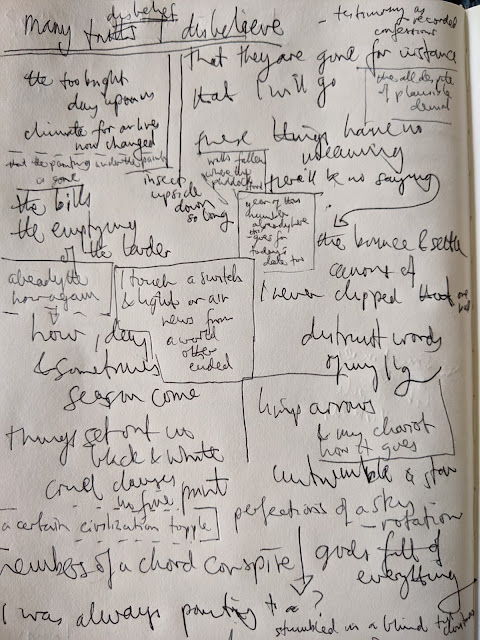 disbelief
many truths I disbelieve
- testimony as recorded confessions
the too bright
day upon us
climate for an lives
now changed
that the painting under the paint
is gone
the bills
the emptying
of the larder
already the
now again
how, deny
& sometimes
season come
things set out in
black & white
cruel clauses
in fine print
a certain civilization topple
members of a chord conspire
I was always pointing to a ?
that they are gone for instance
that I will go
the all despite
of plausible
denial
these things have no
meaning
there'll be no saying
walls fallen
where the
paddock
insect
upside
down
so long
year of the
number
already here
goes for
today's
date too
the bounce & settle
canons of
I never clipped that
distrust words
of my
I touch a switch
& lights on air
news from
a world
often
ended
limp arrows
& my chariot
how it goes
& star
perfections of a sky
rotation
gods full of
everything
stumbled in a blind